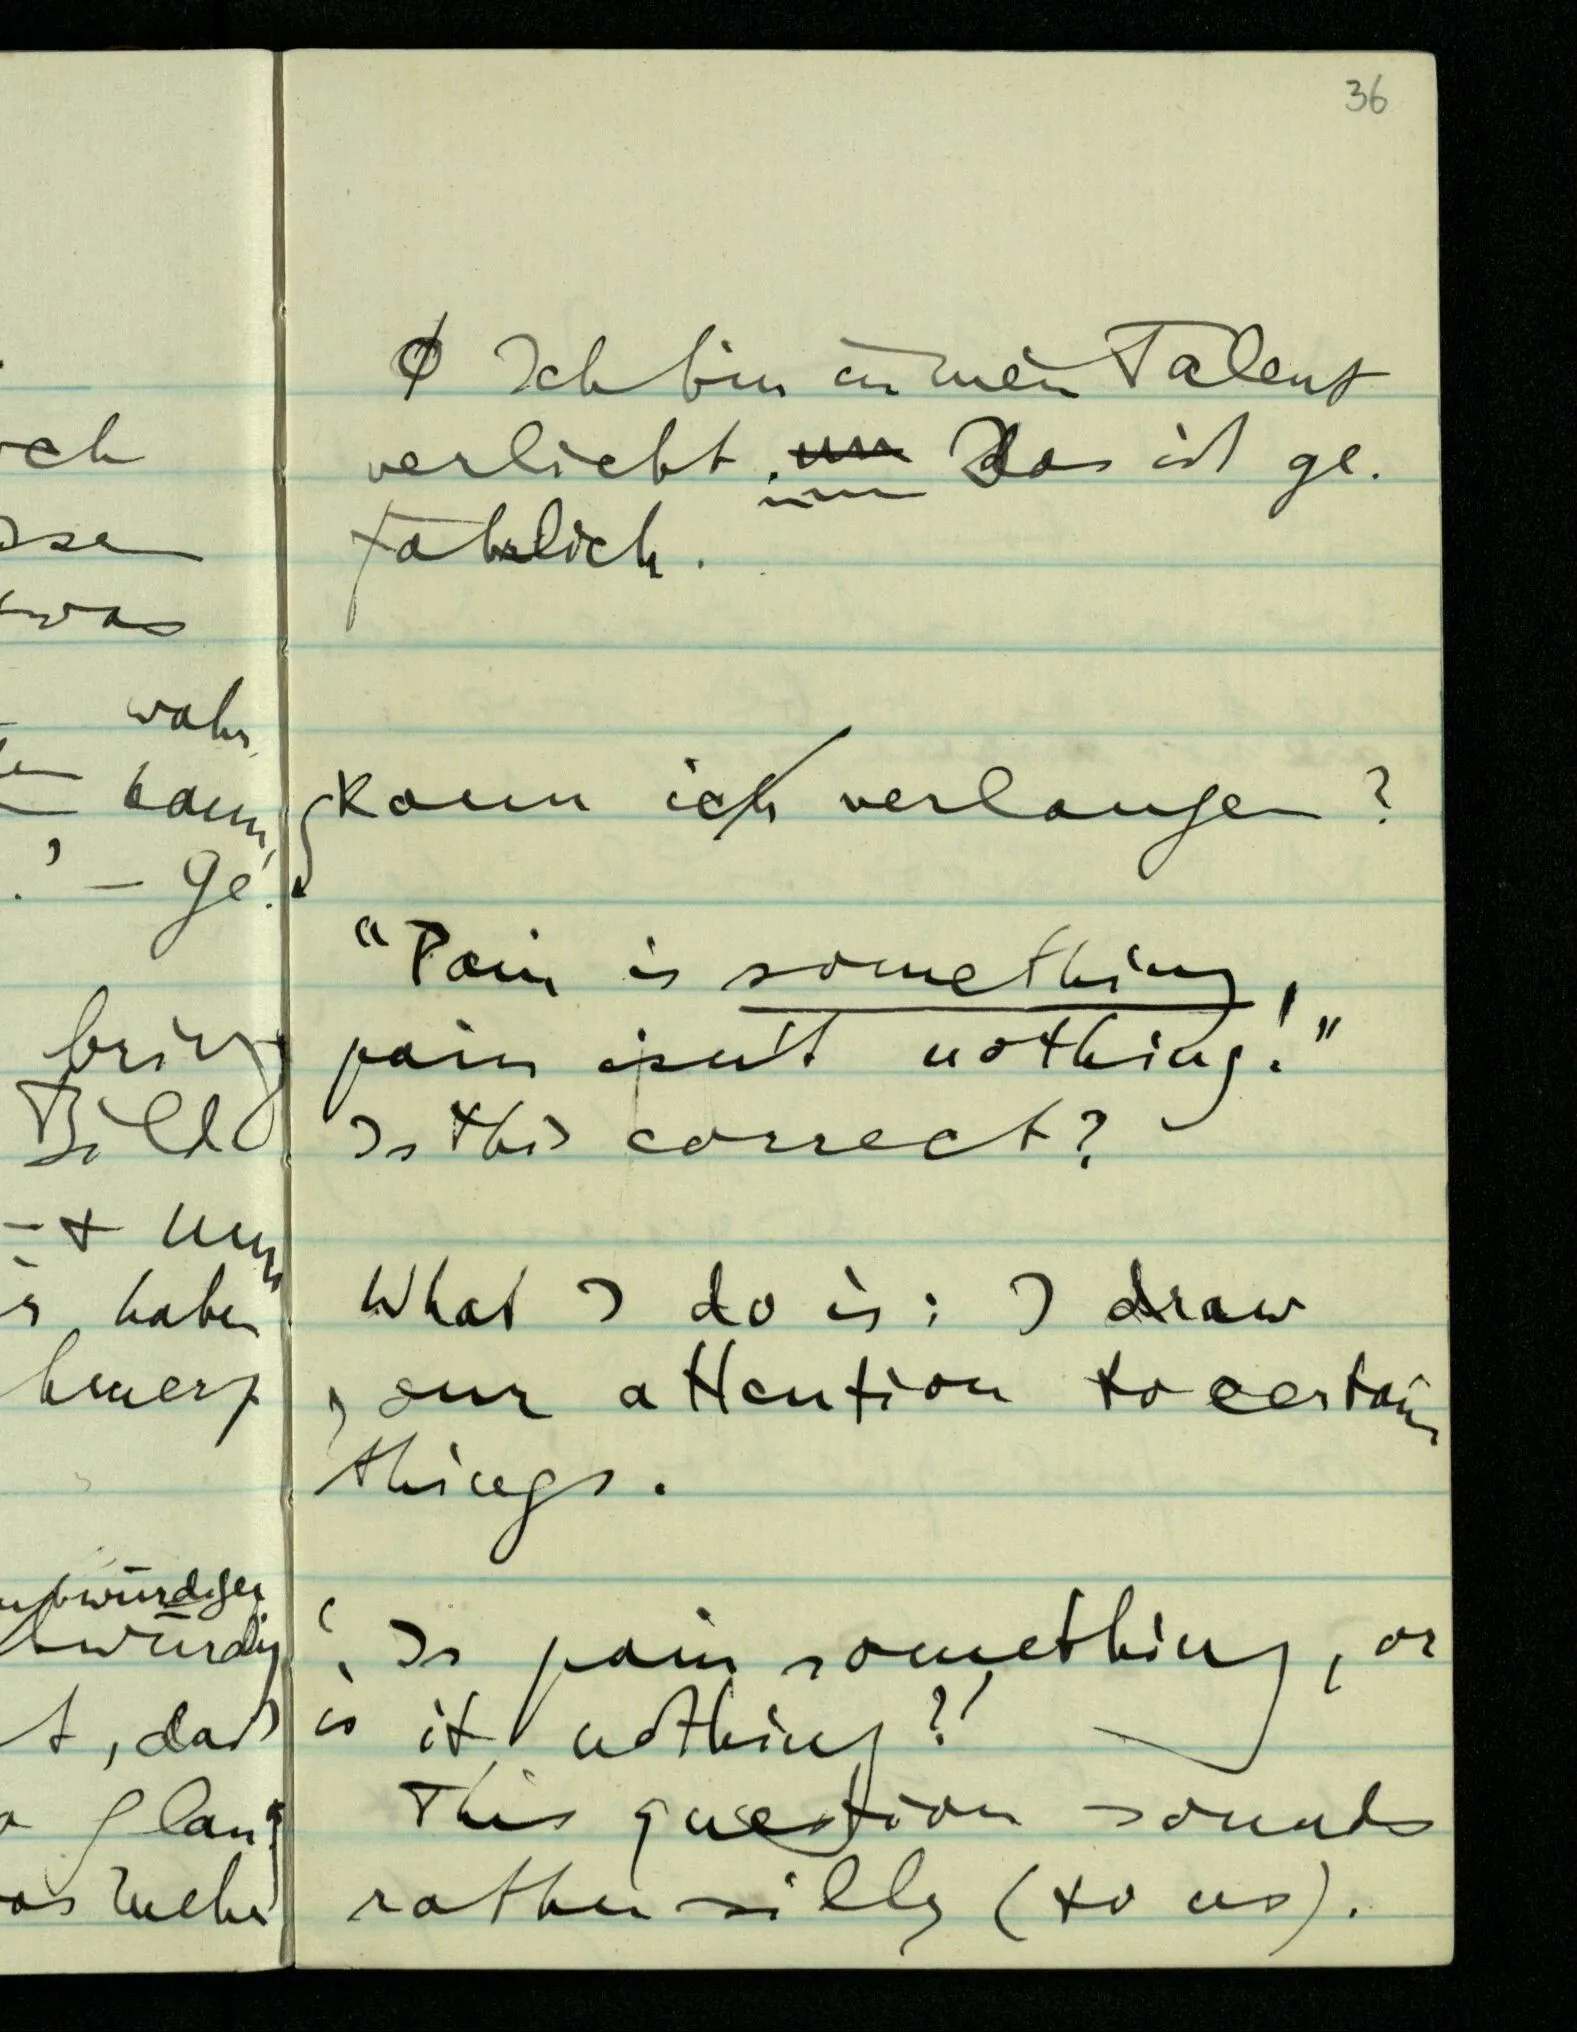 36
ø Ich bin in mein Talent
verliebt. Das ist ge.
fährlich.
Kann ich verlangen?
"Pain is something,
pain isn't nothing!"
Is this correct?
What I do is: I draw
our attention to certain
things.
'Is pain something, or
is it nothing?'
This question sounds
rather silly (to us).
och
twas
wahr
kann,
.' – Ge.
bring
Bild
haben
würdiger
würdig
t, daß